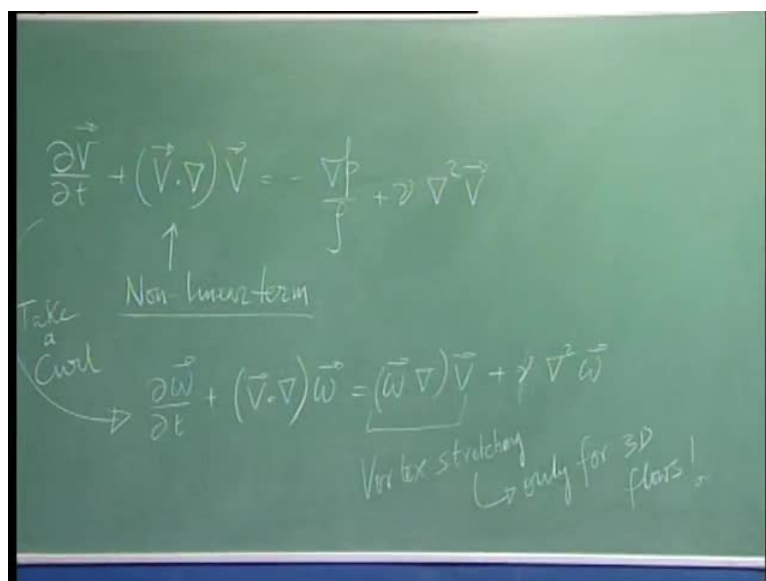 ∂V⃗/∂t + (V⃗·∇) V⃗ = - ∇p/ρ + ν ∇²V⃗
Non-linear term
Take
a
Curl
∂ω⃗/∂t + (V⃗·∇) ω⃗ = (ω⃗ ∇) V⃗ + ν ∇² ω⃗
Vortex stretching
only for 3D
flows!